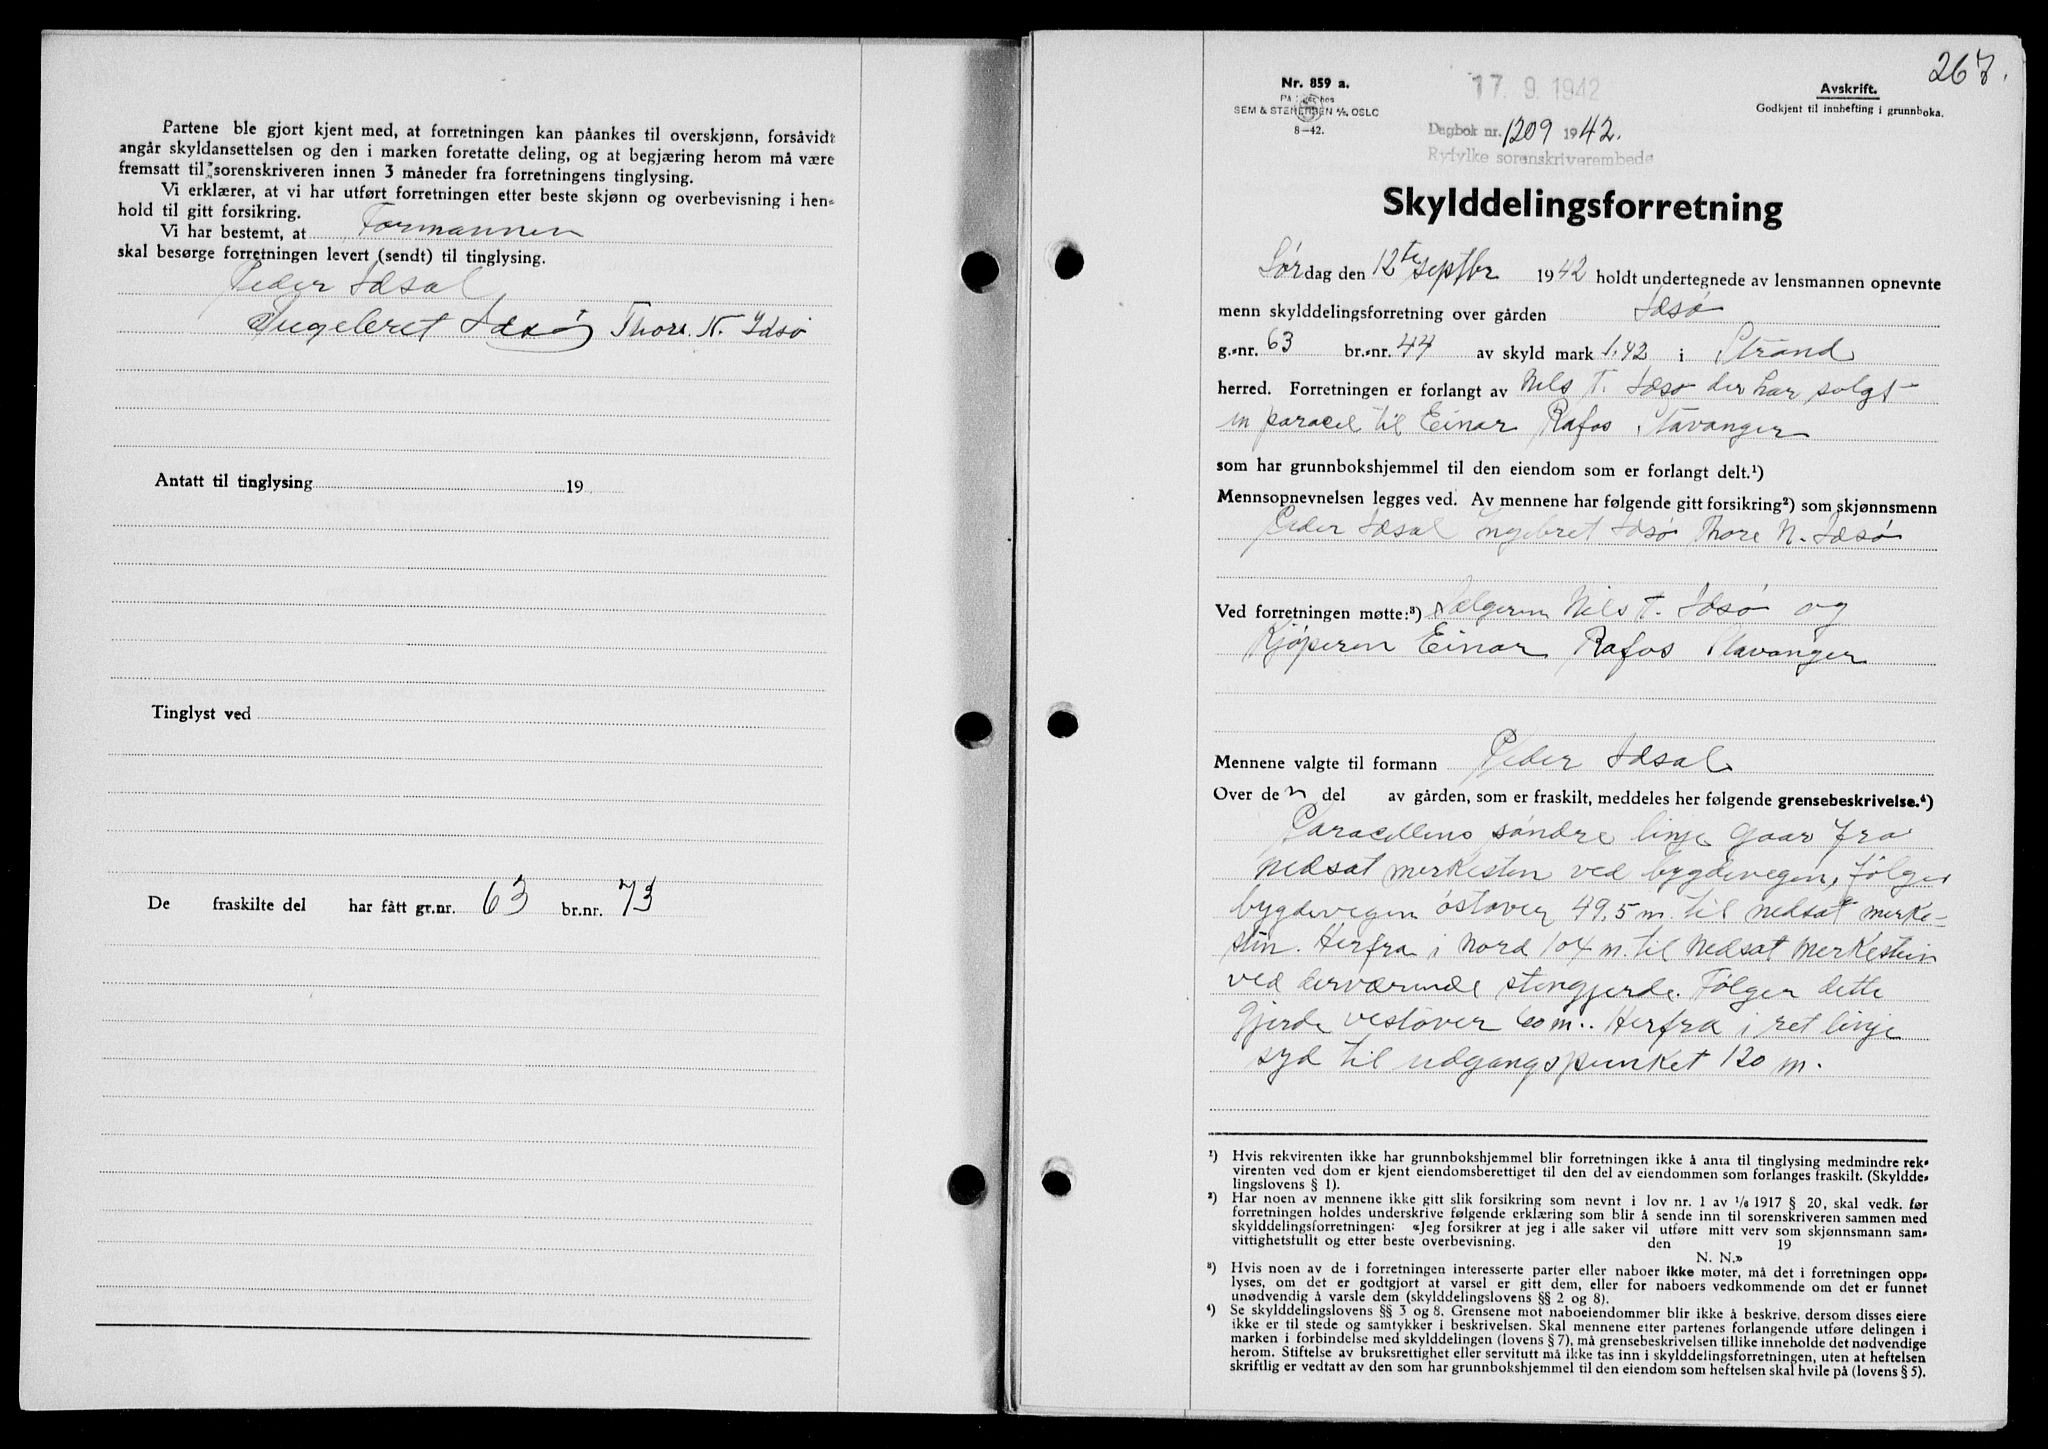 Partene ble gjort kjent med, at forretningen kan påankes til overskjønn, forsåvidt
angår skyldansettelsen og den i marken foretatte deling, og at begjæring herom må være
fremsatt til sorenskriveren innen 3 måneder fra forretningens tinglysing.
Vi erklærer, at vi har utført forretningen etter beste skjønn og overbevisning i hen=
hold til gitt forsikring.
Vi har bestemt, at Formannen
skal besørge forretningen levert (sendt) til tinglysing.
Peder Idsal
Ingebret Idsø Thore N. Idsø
Antatt til tinglysing 19
Tinglyst ved
De fraskilte del har fått gr.nr. 63 br.nr. 73
267.
Nr. 859 a.
SEM & STENERSEN A/S, OSLO
8-42.
17. 9. 1942
Dagbok nr. 1209 1942.
Ryfylke sorenskriverembede
Avskrift.
Godkjent til innhefting i grunnboka.
Skylddelingsforretning
Lørdag den 12te septbr 1942 holdt undertegnede av lensmannen opnevnte
menn skylddelingsforretning over gården Idsø
g.=nr. 63 br.=nr. 44 av skyld mark 1,42 i Strand
herred. Forretningen er forlangt av Nils T. Idsø der har solgt
en paracel til Einar Rafos Stavanger
som har grunnbokshjemmel til den eiendom som er forlangt delt.¹)
Mennsopnevnelsen legges ved. Av mennene har følgende gitt forsikring²) som skjønnsmenn
Peder Idsal Ingebret Idsø Thore N. Idsø
Ved forretningen møtte:³) Sælgeren Nils T. Idsø og
Kjøperen Einar Rafos Stavanger
Mennene valgte til formann Peder Idsal
Over den del av gården, som er fraskilt, meddeles her følgende grensebeskrivelse.⁴)
Paracellens søndre linje gaar fra
nedsat merkesten ved bygdevegen, følger
bygdevegen østover 49,5 m. til nedsat merke-
stein. Herfra i nord 104 m. til nedsat merkestein
ved derværende stengjerde. Følger dette
gjerde vestover 60 m.. Herfra i ret linje
syd til udgangspunket 120 m.
¹) Hvis rekvirenten ikke har grunnbokshjemmel blir forretningen ikke å anta til tinglysing medmindre rek=
virenten ved dom er kjent eiendomsberettiget til den del av eiendommen som forlanges fraskilt. (Skyldde=
lingslovens § 1).
²) Har noen av mennene ikke gitt slik forsikring som nevnt i lov nr. 1 av 1/6 1917 § 20, skal vedk. før
forretningen holdes underskrive følgende erklæring som blir å sende inn til sorenskriveren sammen med
skylddelingsforretningen: «Jeg forsikrer at jeg i alle saker vil utføre mitt verv som skjønnsmann sam=
vittighetsfullt og etter beste overbevisning. den 19
N. N.»
³) Hvis noen av de i forretningen interesserte parter eller naboer ikke møter, må det i forretningen opp=
lyses, om det er godtgjort at varsel er gitt dem, eller for naboers vedkommende om det er funnet
unødvendig å varsle dem (skylddelingslovens §§ 2 og 8).
⁴) Se skylddelingslovens §§ 3 og 8. Grensene mot naboeiendommer blir ikke å beskrive, dersom disses eiere
ikke er til stede og samtykker i beskrivelsen. Skal mennene etter partenes forlangende utføre delingen i
marken i forbindelse med skylddelingen (lovens § 7), må grensebeskrivelsen tillike inneholde det nødvendige
herom. Stiftelse av bruksrettighet eller servitutt må ikke tas inn i skylddelingsforretningen, uten at heftelsen
skriftlig er vedtatt av den som har grunnbokshjemmel til den eiendom som heftelsen skal hvile på (lovens § 5).